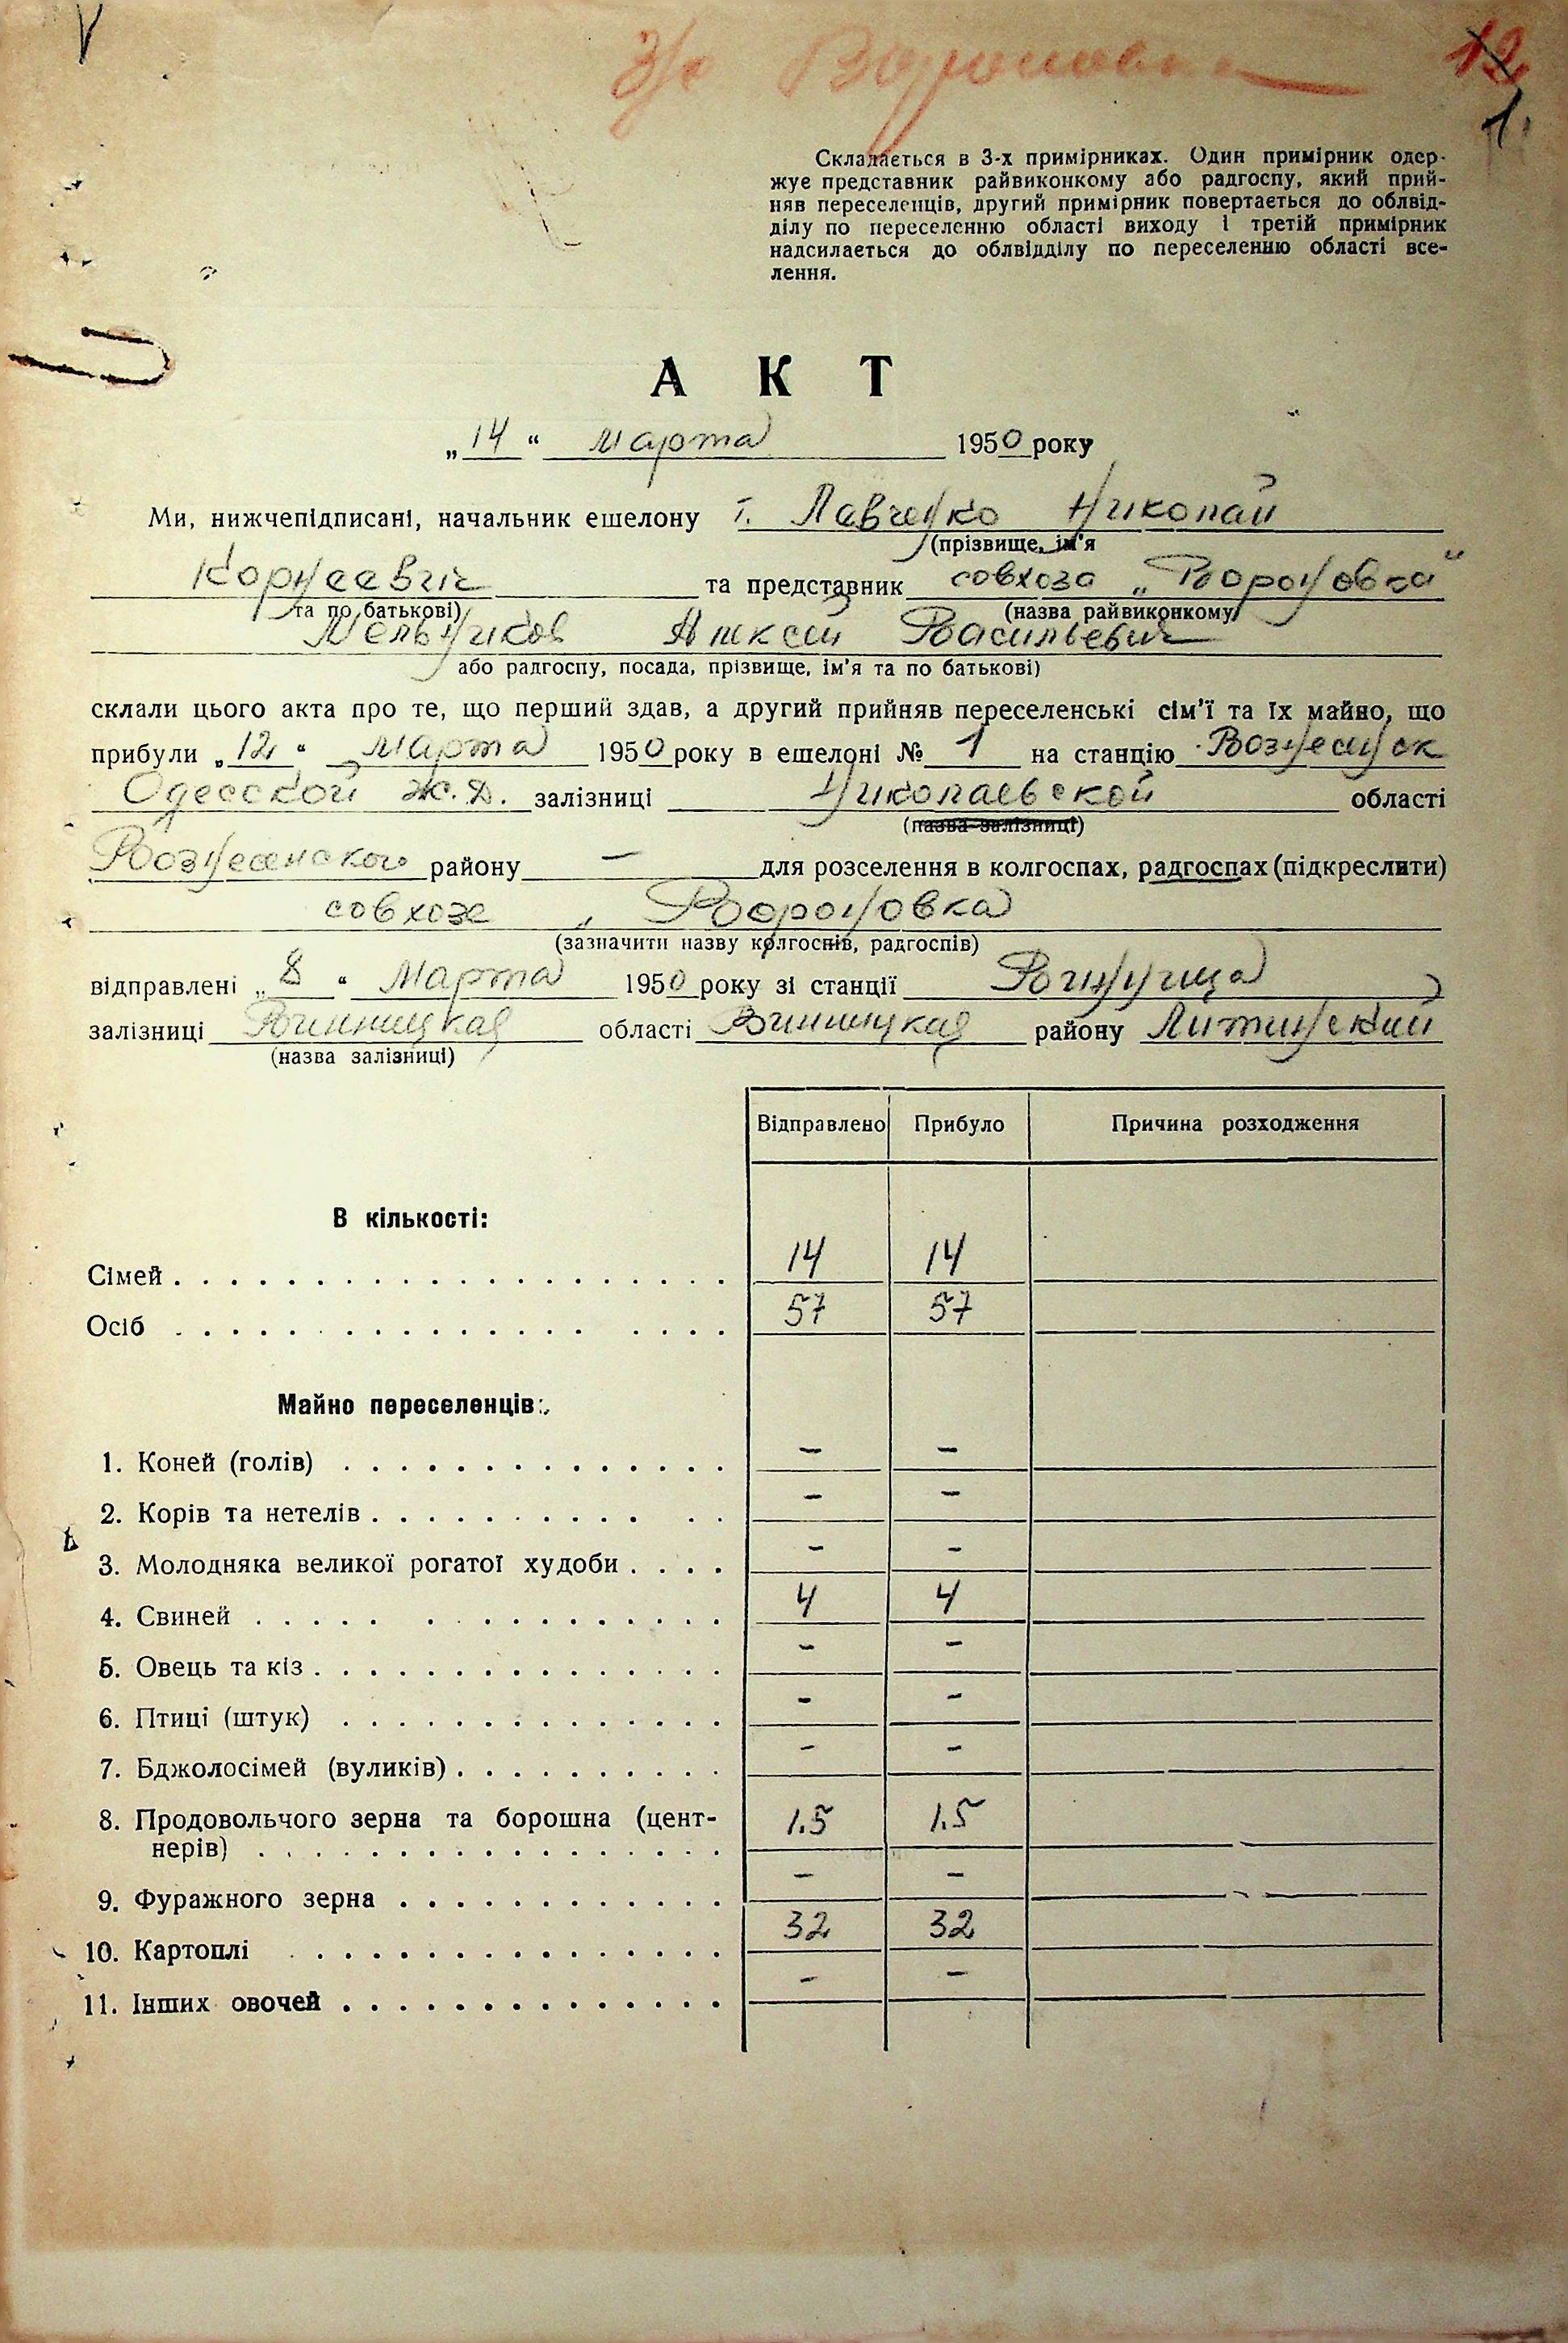 з/с Вороновка 12
1
Складається в 3-х примірниках. Один примірник одер-
жує представник райвиконкому або радгоспу, який прий-
няв переселенців, другий примірник повертається до облвід-
ділу по переселенню області виходу і третій примірник
надсилається до облвідділу по переселенню області все-
лення.
АКТ
„14“ марта 1950 року
Ми, нижчепідписані, начальник ешелону т. Левченко Николай
(прізвище, ім'я
Корнеевич та представник совхоза „Вороновка“
та по батькові) (назва райвиконкому
Мельников Алексей Васильевич
або радгоспу, посада, прізвище, ім'я та по батькові)
склали цього акта про те, що перший здав, а другий прийняв переселенські сім'ї та їх майно, що
прибули „12“ марта 1950 року в ешелоні № 1 на станцію Вознесенск
Одесской Ж.Д. залізниці Николаевской області
(назва залізниці)
Вознесенского району — для розселення в колгоспах, радгоспах (підкреслити)
совхозе „Вороновка
(зазначити назву колгоспів, радгоспів)
відправлені „8“ Марта 1950 року зі станції
залізниці Винницкая області Винницкая району Литинский
(назва залізниці)
Відправлено Прибуло Причина розходження
В кількості:
Сімей 14 14
Осіб 57 57
Майно переселенців:
1. Коней (голів) – –
2. Корів та нетелів – –
3. Молодняка великої рогатої худоби – –
4. Свиней 4 4
5. Овець та кіз – –
6. Птиці (штук) – –
7. Бджолосімей (вуликів) – –
8. Продовольчого зерна та борошна (цент-
нерів) 1.5 1.5
9. Фуражного зерна – –
10. Картоплі 32 32
11. Інших овочей – –